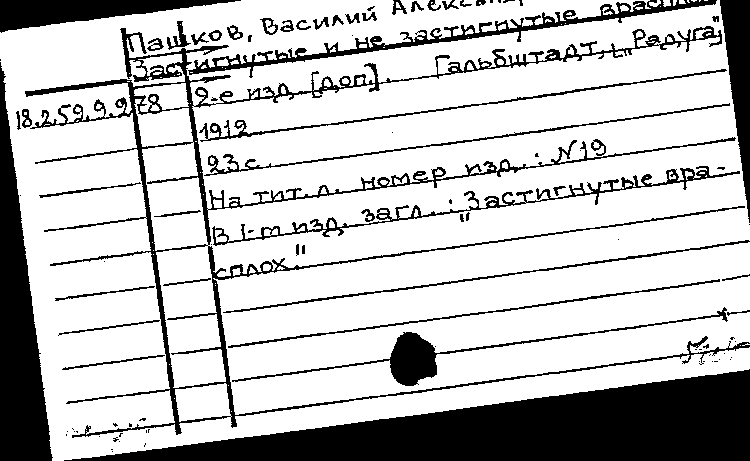 Пашков, Василий Александр
Застигнутые и не застигнутые врасплох
18.2.59.9.278 2-е изд. [доп.]. Гальбштадт, "Радуга",
1912
23 с.
На тит. л. номер изд.: N19
В I-m изд. загл.: "Застигнутые вра-
сплох."